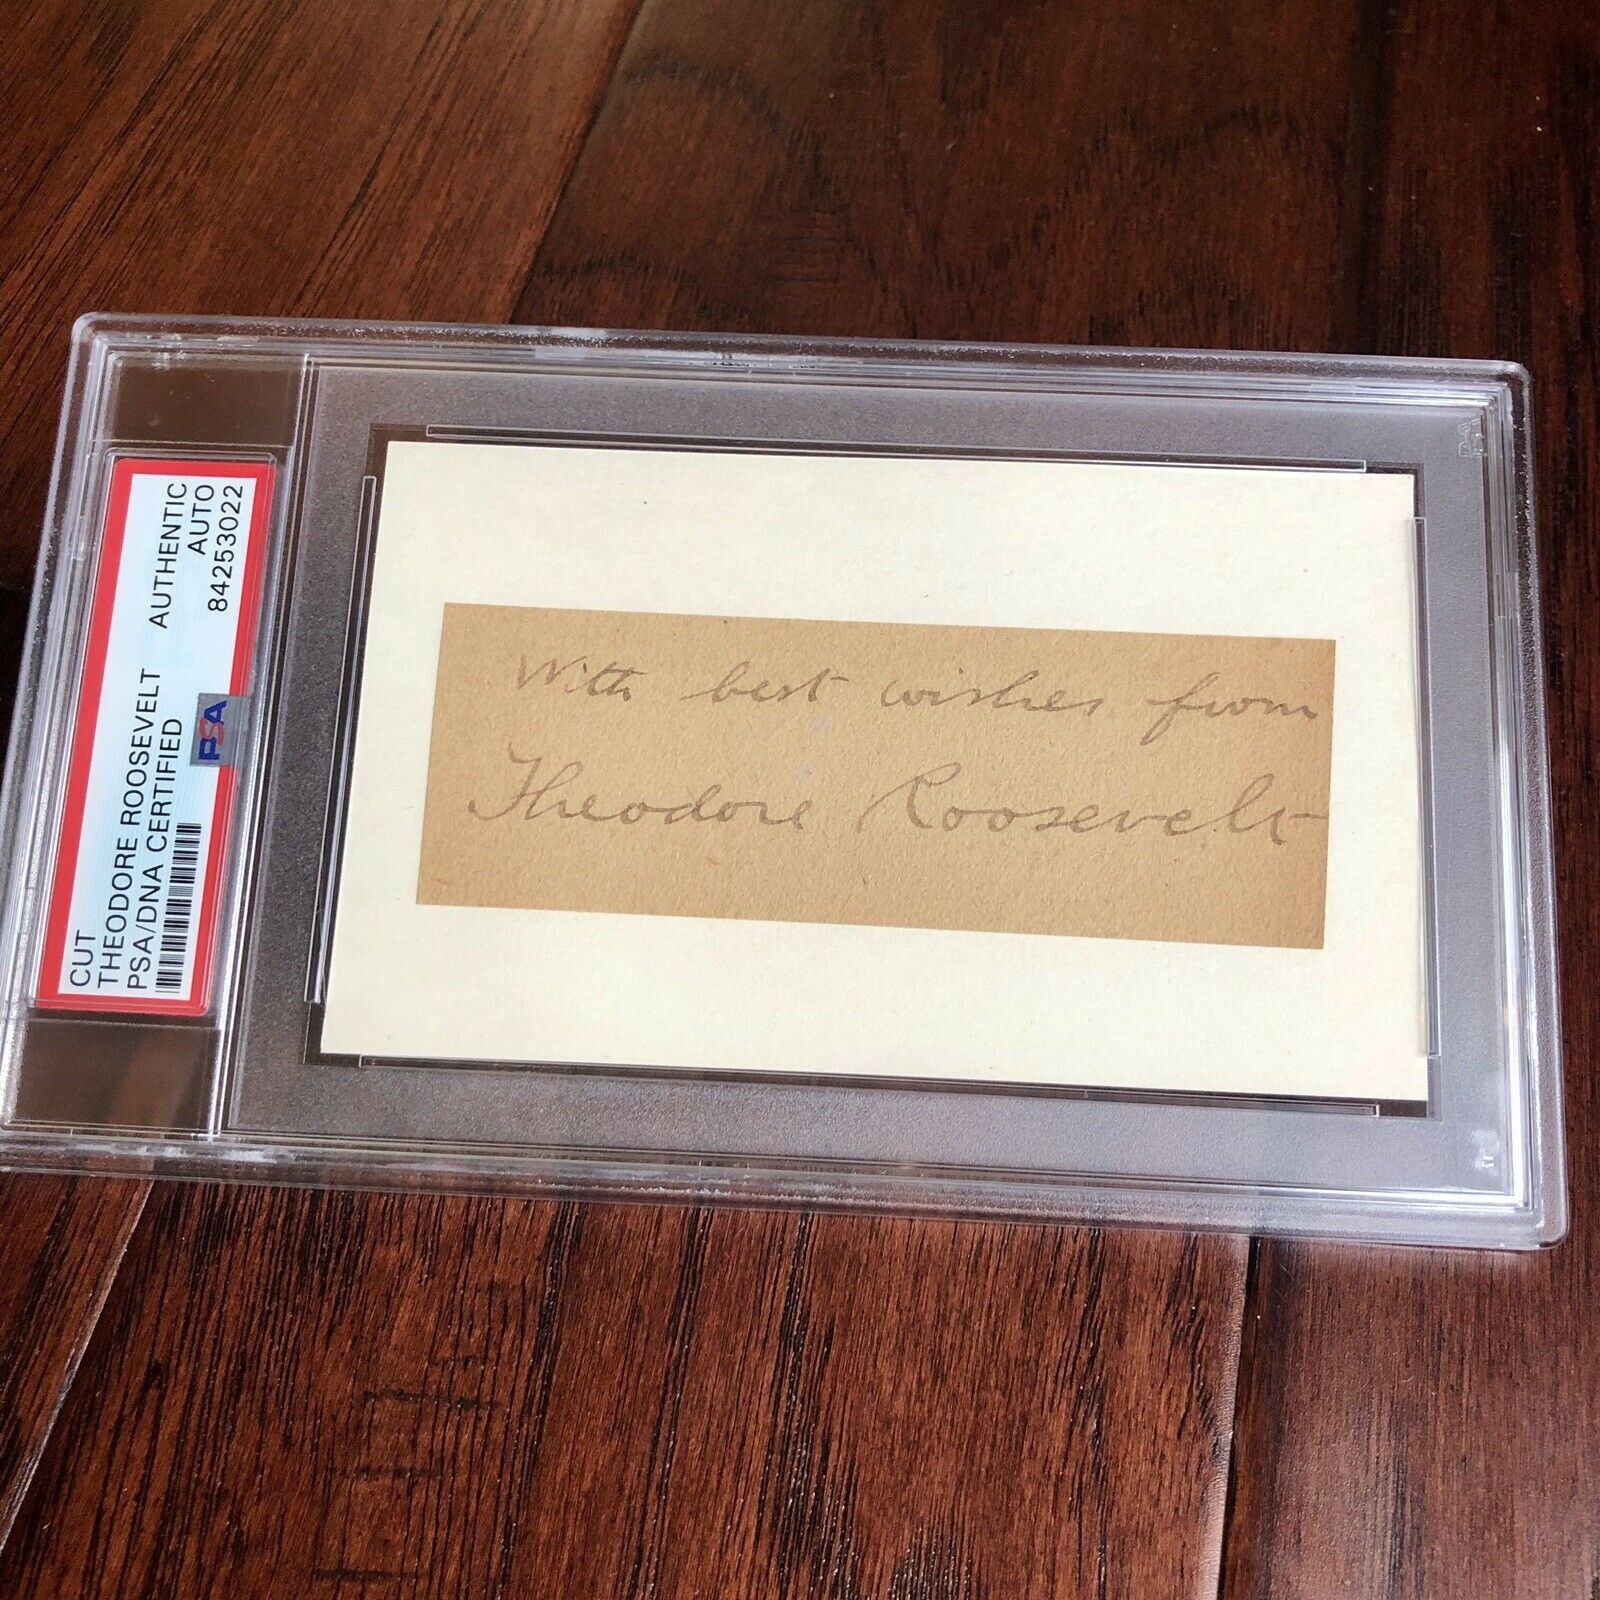 CUT
THEODORE ROOSEVELT AUTHENTIC
PSA/DNA CERTIFIED AUTO
84253022
PSA
With best wishes from
Theodore Roosevelt